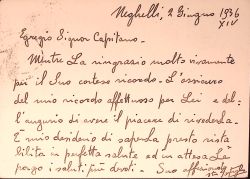 Neghelli, 2 Giugno 1936
XIV
Egregio Signor Capitano.
Mentre La ringrazio molto vivamente
per il Suo cortese ricordo. L'assicuro
del mio ricordo affettuoso per Lei e del-
l'augurio di avere il piacere di rivederLa.
È mio desiderio di saperLa presto rista
bilita in perfetta salute ed in attesa Le
porgo i saluti più devoti. Suo